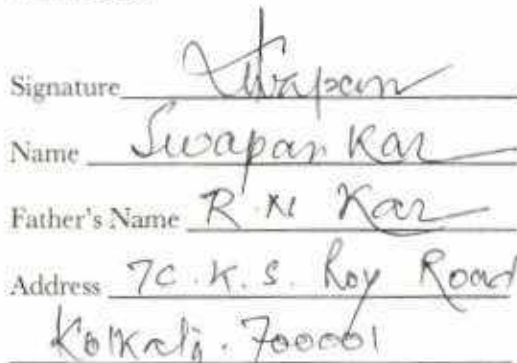 Signature Swapan
Name Swapan Kar
Father's Name R. N Kar
Address 7C. K. S. Roy Road
Kolkata. 700001